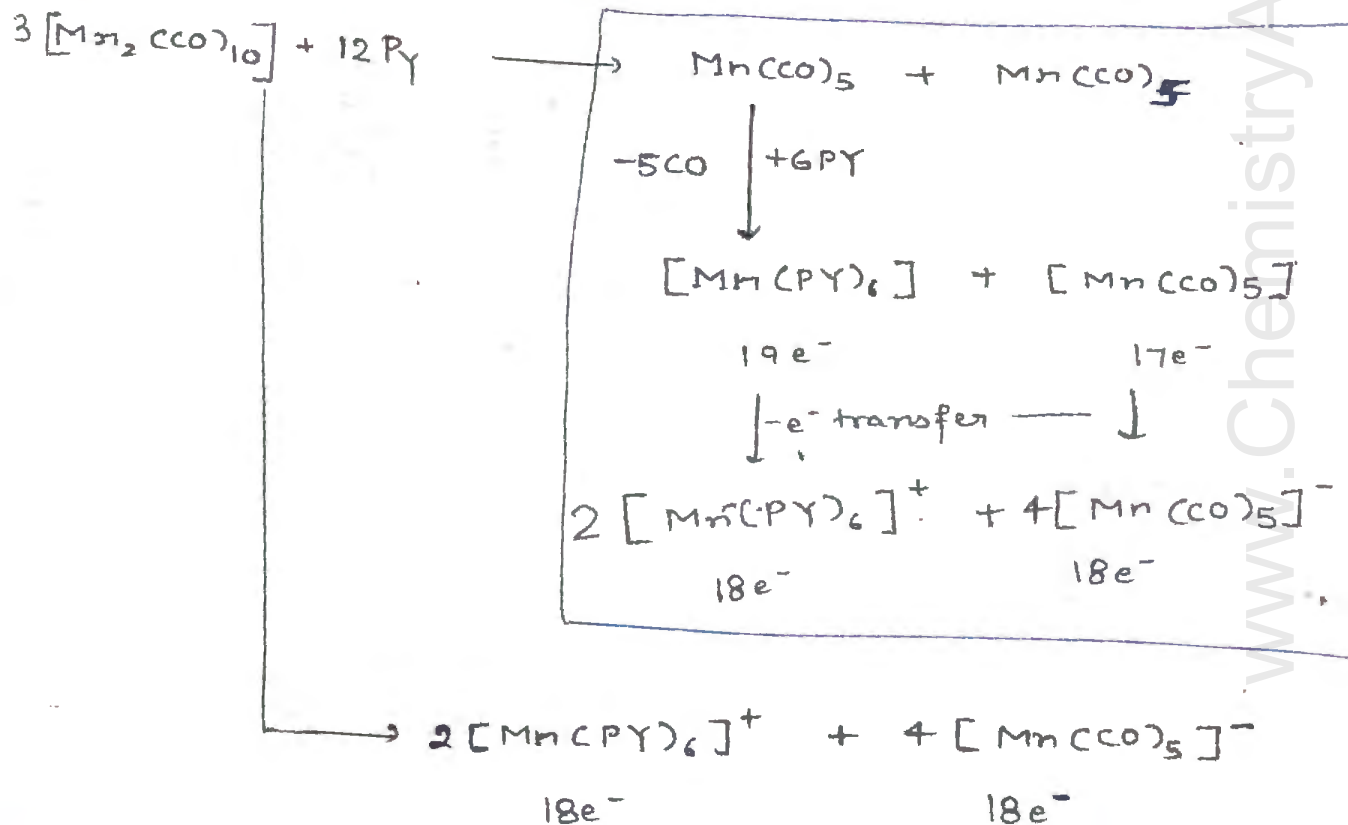 3 [Mn₂ (CO)₁₀] + 12 Py → Mn(CO)₅ + Mn(CO)₅
-5CO +6PY
[Mn (PY)₆] + [Mn (CO)₅]
19 e⁻ 17e⁻
-e⁻ transfer
2 [Mn(PY)₆]⁺ + 4[Mn (CO)₅]⁻
18e⁻ 18e⁻
→ 2 [Mn (PY)₆]⁺ + 4 [Mn (CO)₅]⁻
18e⁻ 18e⁻
www.ChemistryA